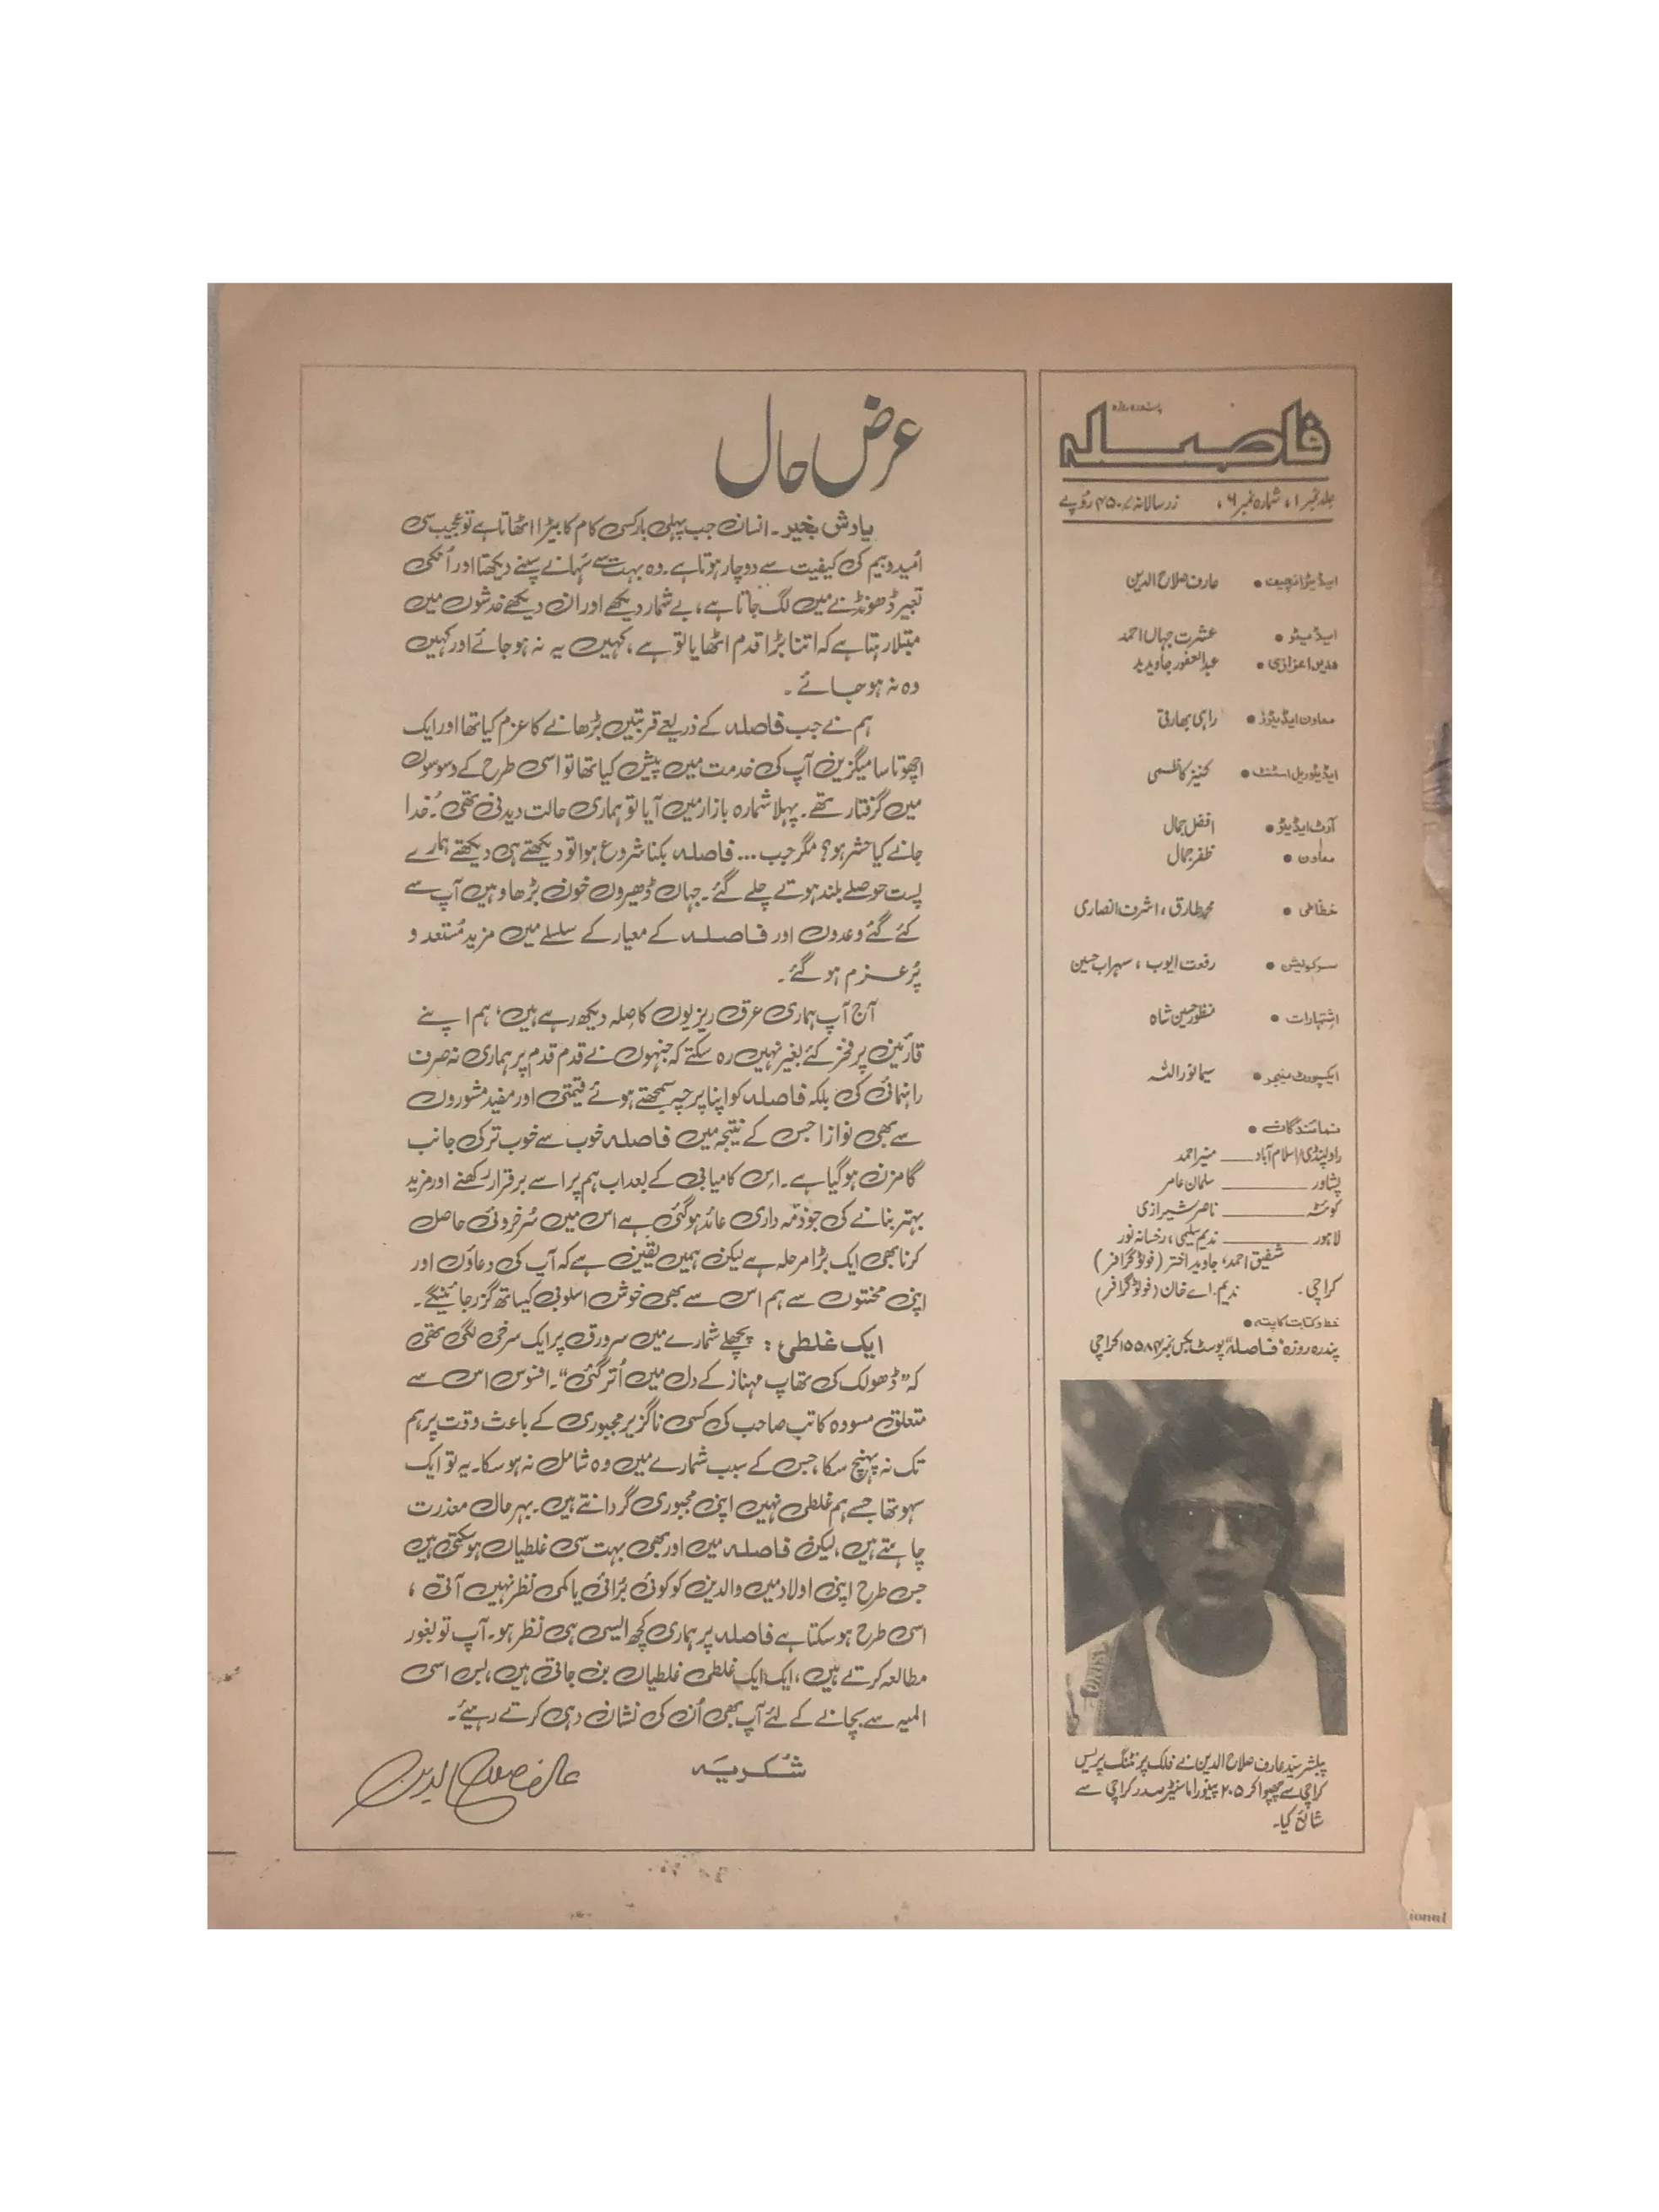 پندرہ روزہ
فاصلہ
جلد نمبر ۱، شمارہ نمبر ۶، زر سالانہ ۴۵۰/- روپے
ایڈیٹر انچیف • عارف صلاح الدین
ایڈیٹر • عشرت جہاں احمد
مدیر اعزازی • عبدالغفور جاوید
معاون ایڈیٹرز • راہی بھارتی
ایڈیٹوریل اسسٹنٹ • کنیز کاظمی
آرٹ ایڈیٹر • افضل جمال
معاون • ظفر جمال
خطاطی • محمد طارق، اشرف انصاری
سرکولیشن • رفعت ایوب، سہراب حسین
اشتہارات • منظور حسین شاہ
ایکسپورٹ مینیجر • سیما نور اللہ
نمائندگان •
راولپنڈی/اسلام آباد ــــ منیر احمد
پشاور ــــ سلمان عامر
کوئٹہ ــــ ناصر شیرازی
لاہور ــــ ندیم سلیمی، رخسانہ نور
شفیق احمد، جاوید اختر (فوٹوگرافر)
کراچی - ندیم۔ اے خان (فوٹوگرافر)
خط و کتابت کا پتہ •
پندرہ روزہ "فاصلہ" پوسٹ بکس نمبر ۱۵۵۸۴ کراچی
پبلشر سید عارف صلاح الدین نے فلک پرنٹنگ پریس
کراچی سے چھپوا کر ۲۰۵ پینوراما سنٹر صدر کراچی سے
شائع کیا۔
عرض حال
یادش بخیر۔ انسان جب پہلی بار کسی کام کا بیڑا اٹھاتا ہے تو عجیب سی
اُمید و بیم کی کیفیت سے دوچار ہوتا ہے۔ وہ بہت سے سُہانے سپنے دیکھتا اور اُنکی
تعبیر ڈھونڈنے میں لگ جاتا ہے، بے شمار دیکھے اور ان دیکھے خدشوں میں
مبتلا رہتا ہے کہ اتنا بڑا قدم اٹھایا تو ہے، کہیں یہ نہ ہو جائے اور کہیں
وہ نہ ہو جائے۔
ہم نے جب فاصلہ کے ذریعے قربتیں بڑھانے کا عزم کیا تھا اور ایک
اچھوتا سا میگزین آپ کی خدمت میں پیش کیا تھا تو اسی طرح کے وسوسوں
میں گرفتار تھے۔ پہلا شمارہ بازار میں آیا تو ہماری حالت دیدنی تھی۔ خدا
جانے کیا حشر ہو؟ مگر جب... فاصلہ بکنا شروع ہوا تو دیکھتے ہی دیکھتے ہمارے
پست حوصلے بلند ہوتے چلے گئے۔ جہاں ڈھیروں خون بڑھا وہیں آپ سے
کئے گئے وعدوں اور فاصلہ کے معیار کے سلسلے میں مزید مُستعد و
پُر عزم ہو گئے۔
آج آپ ہماری عرق ریزیوں کا صلہ دیکھ رہے ہیں، ہم اپنے
قارئین پر فخر کئے بغیر نہیں رہ سکتے کہ جنہوں نے قدم قدم پر ہماری نہ صرف
راہنمائی کی بلکہ فاصلہ کو اپنا پرچہ سمجھتے ہوئے قیمتی اور مفید مشوروں
سے بھی نوازا جس کے نتیجہ میں فاصلہ خوب سے خوب تر کی جانب
گامزن ہو گیا ہے۔ اس کامیابی کے بعد اب ہم پر اسے برقرار رکھنے اور مزید
بہتر بنانے کی جو ذمّہ داری عائد ہو گئی ہے اس میں سُرخروئی حاصل
کرنا بھی ایک بڑا مرحلہ ہے لیکن ہمیں یقین ہے کہ آپ کی دعاؤں اور
اپنی محنتوں سے ہم اس سے بھی خوش اسلوبی کیساتھ گزر جائینگے۔
ایک غلطی: پچھلے شمارے میں سرورق پر ایک سرخی لگی تھی
کہ "ڈھولک کی تھاپ مہناز کے دل میں اُتر گئی"۔ افسوس اس سے
متعلق مسودہ کاتب صاحب کی کسی ناگزیر مجبوری کے باعث وقت پر ہم
تک نہ پہنچ سکا، جس کے سبب شمارے میں وہ شامل نہ ہو سکا۔ یہ تو ایک
سہو تھا جسے ہم غلطی نہیں اپنی مجبوری گردانتے ہیں۔ بہر حال معذرت
چاہتے ہیں، لیکن فاصلہ میں اور بھی بہت سی غلطیاں ہو سکتی ہیں
جس طرح اپنی اولاد میں والدین کو کوئی بُرائی یا کمی نظر نہیں آتی،
اسی طرح ہو سکتا ہے فاصلہ پر ہماری کچھ ایسی ہی نظر ہو۔ آپ تو بغور
مطالعہ کرتے ہیں، ایک ایک غلطی غلطیاں بن جاتی ہیں، بس اسی
المیہ سے بچانے کے لئے آپ بھی اُن کی نشان دہی کرتے رہیئے۔
شکریہ
عارف صلاح الدین